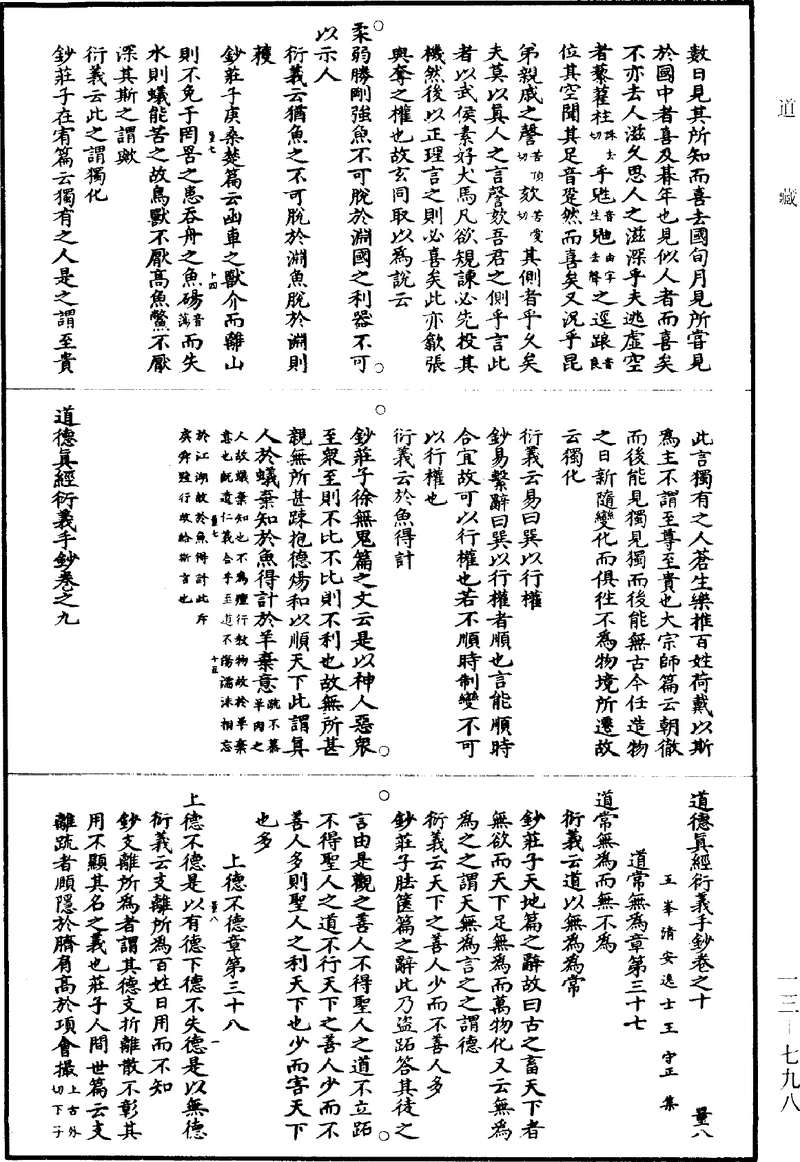 道藏
數日見其所知而喜去國旬月見所嘗見
於國中者喜及朞年也見似人者而喜矣
不亦去人滋久思人之滋深乎夫逃虛空
者藜藋柱 殊主切 乎鼪 音生 鼬 由字去聲 之逕踉 音良
位其空聞其足音跫然而喜矣又況乎昆
弟親戚之謦 苦頂切 欬 苦愛切 其側者乎久矣
夫莫以真人之言謦欬吾君之側乎言此
者以武侯素好犬馬凡欲規諫必先投其
機然後以正理言之則必喜矣此亦歙張
與奪之權也故玄同取以為說云
柔弱勝剛強魚不可脫於淵國之利器不可
以示人
衍義云猶魚之不可脫於淵魚脫於淵則
穫
鈔莊子庚桑楚篇云函車之獸介而離山
量七
則不免于罔罟之患吞舟之魚碭 音蕩 而失
十四
水則蟻能苦之故鳥獸不厭高魚鱉不厭
深其斯之謂歟
衍義云此之謂獨化
鈔莊子在宥篇云獨有之人是之謂至貴
此言獨有之人蒼生樂推百姓荷戴以斯
為主不謂至尊至貴也大宗師篇云朝徹
而後能見獨見獨而後能無古今任造物
之日新隨變化而俱往不為物境所遷故
云獨化
衍義云易曰巽以行權
鈔易繫辭曰巽以行權者順也言能順時
合宜故可以行權也若不順時制變不可
以行權也
衍義云於魚得計
鈔莊子徐無鬼篇之文云是以神人惡衆
至衆至則不比不比則不利也故無所甚
親無所甚踈抱德煬和以順天下此謂真
人於蟻棄知於魚得計於羊棄意 疏不慕羊肉之
人故蟻棄知也不為羶行教物故於羊棄
意也既遺仁義合乎至道不傷濡沫相忘
量七
十五
於江湖故於魚得計此斥
虞舜羶行故給斯言也
道德真經衍義手鈔卷之九
道德真經衍義手鈔卷之十
量八
王峯清安逸士王守正集
道常無為章第三十七
道常無為而無不為
衍義云道以無為為常
鈔莊子天地篇之辭故曰古之畜天下者
無欲而天下足無為而萬物化又云無為
為之之謂天無為言之之謂德
衍義云天下之善人少而不善人多
鈔莊子胠篋篇之辭此乃盜跖答其徒之
言由是觀之善人不得聖人之道不立跖
不得聖人之道不行天下之善人少而不
善人多則聖人之利天下也少而害天下
也多
上德不德章第三十八
上德不德是以有德下德不失德是以無德
量八
一
衍義云支離所為百姓日用而不知
鈔支離所為者謂其德支折離散不彰其
用不顯其名之義也莊子人間世篇云支
離疏者頤隱於臍肩高於項會撮 上古外切下子
一三－七九八